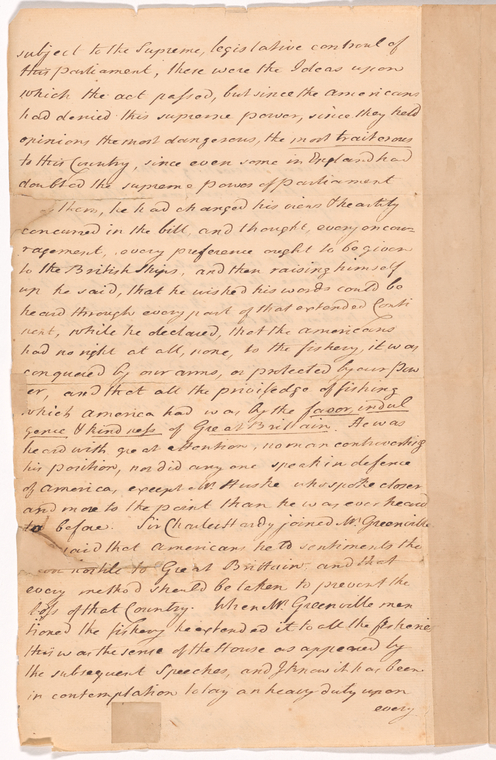 subject to the Supreme, legislative controul of
this parliament, these were the Ideas upon
which the act passed, but since the americans
had denied this supreme power, since they held
opinions the most dangerous, the most traitorous
to this Country, since even some in England had
doubted the supreme power of parliament
them, he had changed his views & heartily
concurred in the bill, and thought, every encou-
ragement, every preference ought to be given
to the British Ships, and then raising himself
up he said, that he wished his words could be
heard through every part of that extended Conti
nent, while he declared, that the americans
had no right at all, none, to the fishery, it was
conquered by our arms, or protected by our pow
er, and that all the priviledge of fishing
which america had was by the favor, indul
gence & kindness of Great Brittain. He was
heard with great attention, no man controverting
his position, nor did any one speak in defence
of america, except Mr. Huske who spoke closer
and more to the point than he was ever heard
to before. Sir Charles Hardy joined Mr. Greenville
said that americans held sentiments the
to Great Brittain, and that
every method should be taken to prevent the
loss of that Country. When Mr. Greenville men
tioned the fishery he extended it to all the fisheries
this was the sense of the House as appeared by
the subsequent Speeches, and I know it has been
in contemplation to lay an heavy duty upon
every